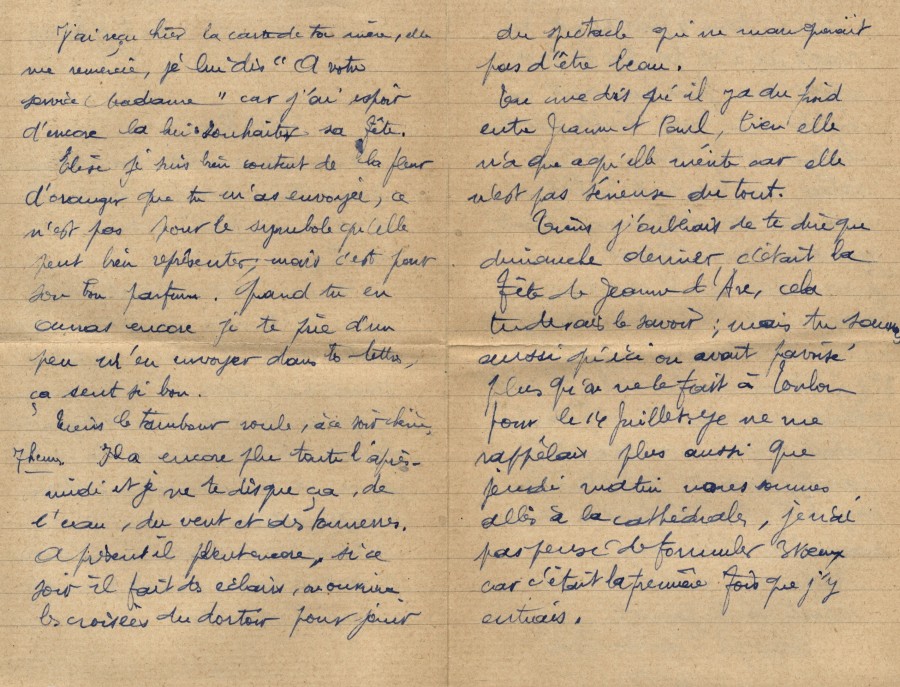 J'ai reçu hier la carte de ta mère, elle
me remercie, je lui dis " A votre
service Madame " car j'ai espoir
d'encore la lui souhaiter sa fête.
je suis bien content de la fleur
d'oranger que tu m'as envoyée, ce
n'est pas pour le symbole qu'elle
peut bien représenter, mais c'est pour
son bon parfum. Quand tu en
auras encore je te prie d'un
peu m'en envoyer dans tes lettres,
ça sent si bon.
Tiens le tambour roule, à ce soir chérie,
7 heures Il a encore plu toute l'après-
midi et je ne te dis que ça, de
l'eau, du vent et des tonnerres.
A présent il pleut encore, si ce
soir il fait des éclairs, on ouvrira
les croisées du dortoir pour jouir
du spectacle qui ne manquerait
pas d'être beau.
Tu me dis qu'il y a du froid
entre Jeanne et Paul, bien elle
n'a que ce qu'elle mérite car elle
n'est pas sérieuse du tout.
Tiens j'oubliais de te dire que
dimanche dernier c'était la
Fête de Jeanne d'Arc, cela
tu devais le savoir ; mais tu sauras
aussi qu'ici on avait pavoisé
plus qu'on ne le fait à Toulon
pour le 14 Juillet. Je ne me
rappelais plus aussi que
jeudi matin nous sommes
allés à la cathédrales, je n'ai
pas pensé de formuler 3 vœux
car c'était la première fois que j'y
entrais.